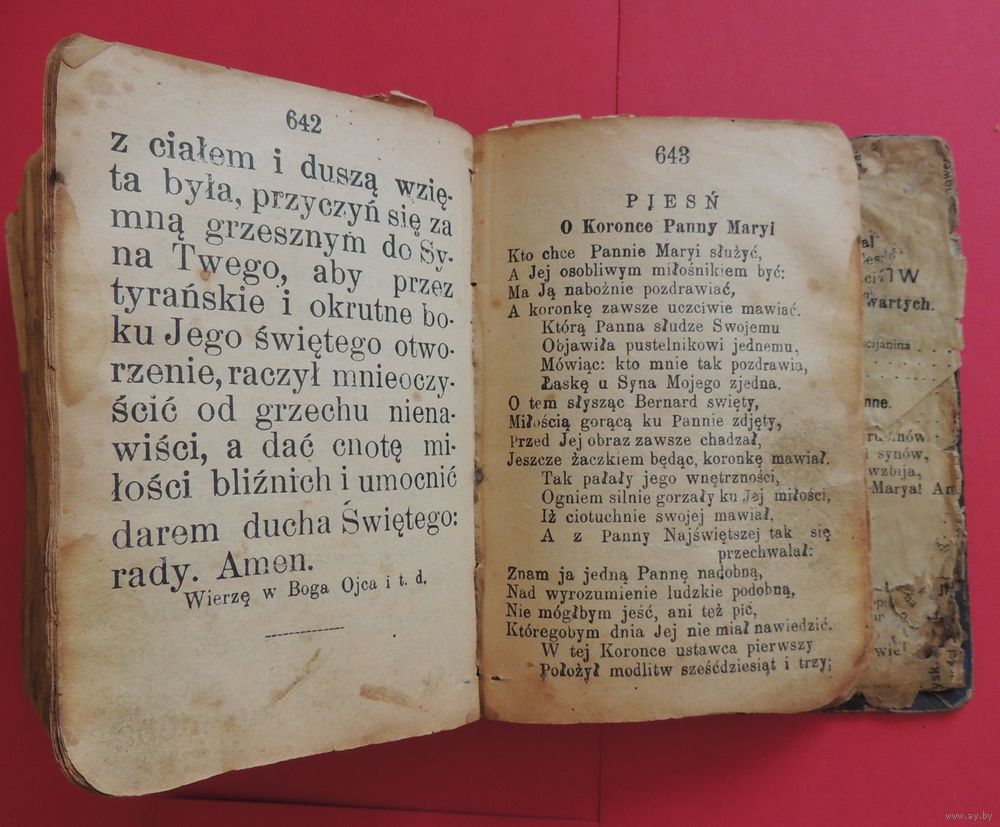 642
z ciałem i duszą wzię-
ta była, przyczyń się za
mną grzesznym do Sy-
na Twego, aby przez
tyrańskie i okrutne bo-
ku Jego świętego otwo-
rzenie, raczył mnieoczy-
ścić od grzechu niena-
wiści, a dać cnotę mi-
łości bliźnich i umocnić
darem ducha Świętego:
rady. Amen.
Wierzę w Boga Ojca i t. d.
643
PIESŃ
O Koronce Panny Maryi
Kto chce Pannie Maryi służyć,
A Jej osobliwym miłośnikiem być:
Ma Ją nabożnie pozdrawiać,
A koronkę zawsze uczciwie mawiać.
Którą Panna słudze Swojemu
Objawiła pustelnikowi jednemu,
Mówiąc: kto mnie tak pozdrawia,
Łaskę u Syna Mojego zjedna.
O tem słysząc Bernard święty,
Miłością gorącą ku Pannie zdjęty,
Przed Jej obraz zawsze chadzał,
Jeszcze żaczkiem będąc, koronkę mawiał.
Tak pałały jego wnętrzności,
Ogniem silnie gorzały ku Jej miłości,
Iż ciotuchnie swojej mawiał,
A z Panny Najświętszej tak się
przechwalał:
Znam ja jedną Pannę nadobną,
Nad wyrozumienie ludzkie podobną,
Nie mógłbym jeść, ani też pić,
Któregobym dnia Jej nie miał nawiedzić.
W tej Koronce ustawca pierwszy
Położył modlitw sześćdziesiąt i trzy;
wartych.
cijanina
nne.
i synów,
wzbija,
Marya!
www.ay.by